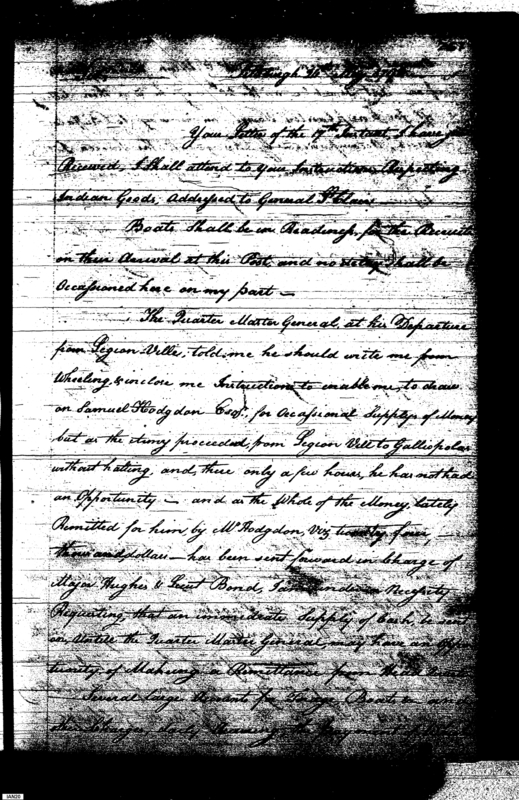 Pittsburgh 25th May 179
Your Letter of the 17th Instant, I have just
Received, I Shall attend to your Instructions Respecting
Indian Goods, Addressed to General St Clair —
Boats Shall be in Readiness, for the Recruits
on their Arrival at this Post, and no delay Shall be
Occassioned here on my part —
The Quarter Master General, at his Departure
from Legion Ville, told me he should write me from
Wheeling, & inclose me Instructions to enable me, to draw
on Samuel Hodgdon Esqr., for Occassional Supplys of Money
but as the Army proceeded, from Legion Vill to Galliopolas
without halting, and, there only a few hours, he has not had
an Opportunity — and as the Whole of the Money, lately
Remitted for him by Mr Hodgdon, Viz twenty four
thousand, dollars — has been sent forward in Charge of
Major Hughes & Lieut Bond, I am under a Necessity
Requesting, that an immediate Supply of Cash, be sent
on, Untill the Quarter Master General, may have an Oppor
tunity, of Making a Remittance from Head
Several large for Boats &
Charges, daily the of